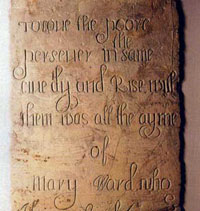 To loue the poore
the
perseuer in same
liue dy and Rise with
them was all the ayme
of
Mary Ward who